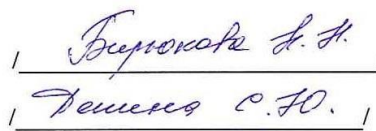 / Бирюкова Н. Н.
/ Демина С. Ю. /